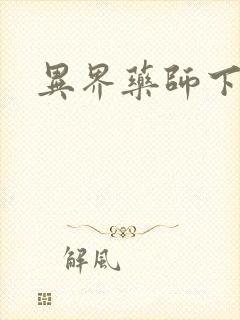 異界藥師下
解風